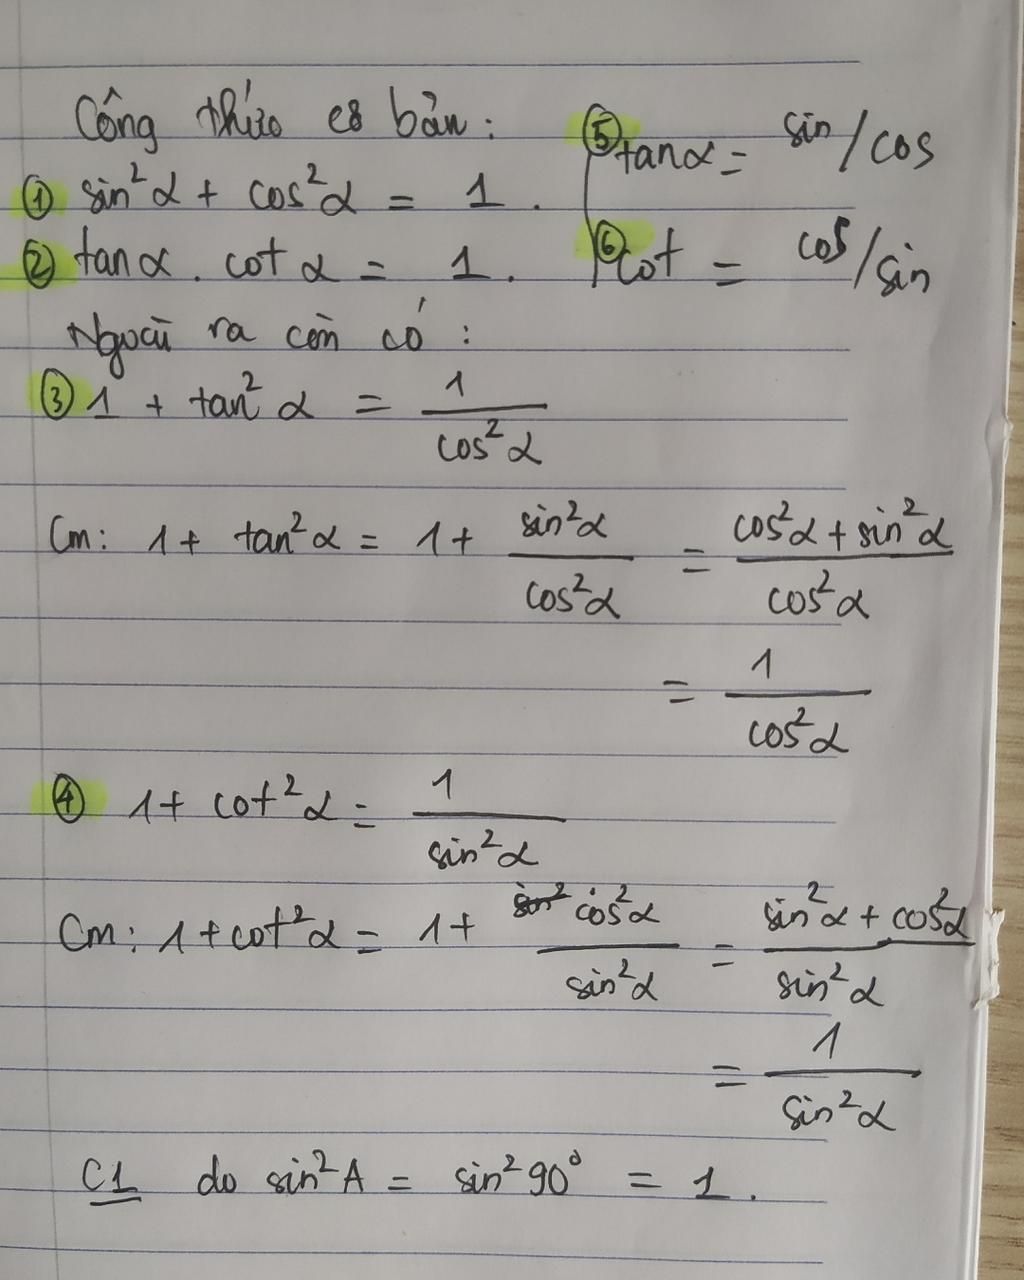 Công thức cơ bản:
① sin²α + cos²α = 1.
② tanα . cot α = 1.
⑤ tanα = sin/cos
⑥ cot = cos/sin
Ngoài ra còn có:
③ 1 + tan² α = 1/cos²α
Cm: 1 + tan²α = 1 + sin²α/cos²α = (cos²α + sin²α)/cos²α
= 1/cos²α
④ 1 + cot²α = 1/sin²α
Cm: 1 + cot²α = 1 + cos²α/sin²α = (sin²α + cos²α)/sin²α
= 1/sin²α
C1 do sin²A = sin²90° = 1.